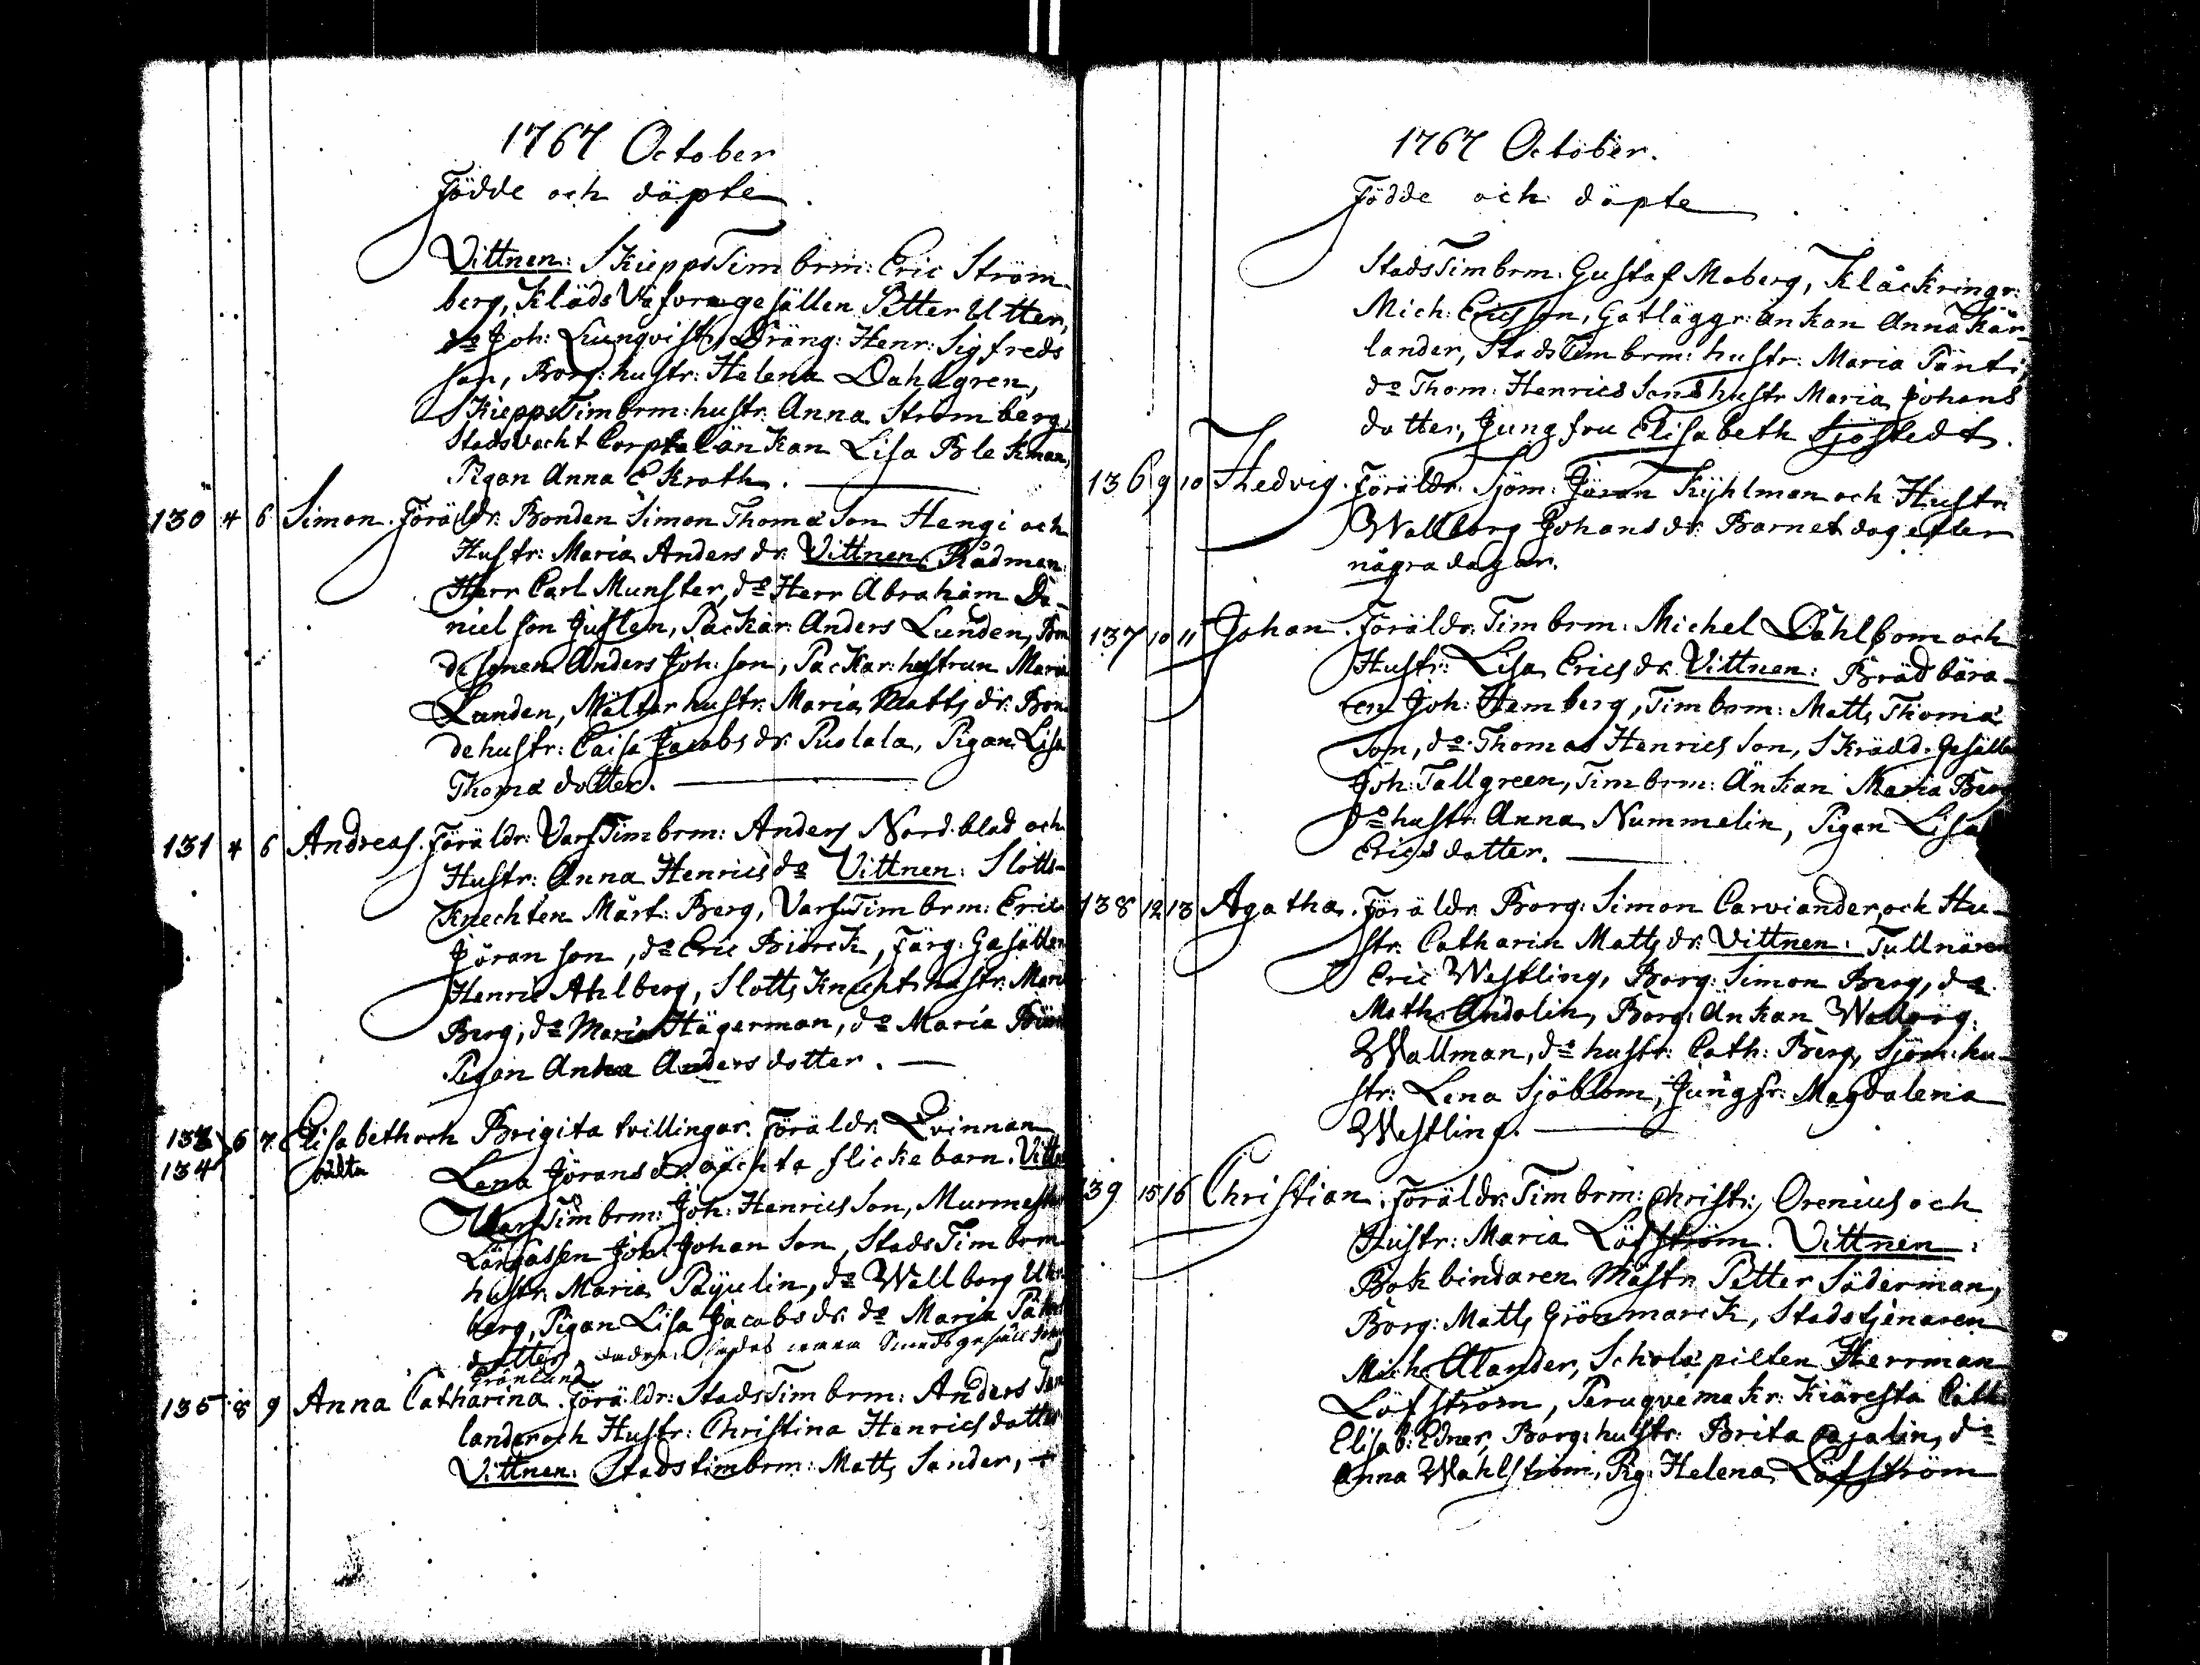 1767 October
Födde och döpte
Vittnen: SkieppsTimbrm: Eric Ström-
berg, Kläds Väfvaregesällen Petter Utter,
do Joh: Lunqvist, Dräng: Henr: Sigfreds
son, Borg: hustr: Helena Dahlgren,
SkieppsTimbrm: hustr: Anna Strömberg,
Stadsvacht Corpralänkan Lisa Blekman,
Pigan Anna Ekroth.
130 4 6 Simon. Föräldr: Bonden Simon Thomæ Son Hengi och
Hustr: Maria Anders dr. Vittnen: Rådman:
Herr Carl Munster, do Herr Abraham Da-
nielson Juslen, Packar: Anders Lunden, Bon
desonen Anders Joh: son, Packar: hustrun Maria
Lunden, Mältar hustr: Maria Matts dr. Bon
dehustr: Caisa Jacobs dr. Puolala, Pigan Lisa
Thomæ dotter.
131 4 6 Andreas. Föräldr: VarfsTimbrm: Anders Nordblad och
Hustr: Anna Henrics dr Vittnen: Slotts-
Knechten Mårt: Berg, VarfsTimbrm: Eric
Jöranson, do Eric Biörck, Färg: Gesällen
Henric Ahlberg, Slotts Knechts hustr: Maria
Berg, do Maria Hägerman, do Maria Biörck
Pigan Anna Andersdotter.
133 6 7. Elisabeth och Brigita tvillingar. Föräldr: Qvinnan
134 Lena Jörans dr. oächta flickebarn. Vittn
VarfsTimbrm: Joh: Henrics Son, Murmest
Joh: Johan Son, StadsTimbrm
hustr: Maria Päyulin, do Wallborg
berg, Pigan Lisa Jacobs dr. do Maria
dotter,
Grönlund
135 8 9 Anna Catharina. Föräldr: StadsTimbrm: Anders
lander och Hustr: Christina Henrics dotter
Vittnen: Stadstimbrm: Matts Sander,
1767 October.
Födde och döpte
StadsTimbrm: Gustaf Moberg, Klåckringr:
Mich: Ericsson, Gatläggr: änkan Anna Kär-
lander, StadsTimbrm: hustr: Maria Pänti,
do Thom: Henrics Sons hustr Maria Johans
dotter, Jungfru Elisabeth Sjöstedt.
136 9 10 Hedvig. Föräldr: Sjöm: Jöran Kyhlman och Hustr
Wallborg Johans dr: Barnet dog efter
några dagar.
137 10 11 Johan. Föräldr: Timbrm: Michel Dahlbom och
Hustr: Lisa Erics dr. Vittnen: Brädbära-
ren Joh: Hemberg, Timbrm: Matts Thomæ
Son, do Thomas Henrics Son, Skrädd: Gesälln
Joh: Tallgreen, Timbrm: Änkan Maria Berg
do hustr: Anna Nummelin, Pigan Lisa
Ericsdotter.
138 12 13 Agatha. Föräldr: Borg: Simon Carviander, och Hu-
str: Catharin Matts dr. Vittnen: Tullnären
Eric Westling, Borg: Simon Berg, do
Math: Andelin, Borg: änkan Walborg:
Wallman, do hustr: Cath: Berg, Sjöm: hu-
str: Lena Sjöblom, Jungfr: Magdalena
Westling.
139 15 16 Christian. Föräldr: Timbrm: Christ: Orenius och
Hustr: Maria Löfström. Vittnen:
Bokbindaren Mästr Petter Söderman,
Borg: Matts Grönmarck, Stadstjenaren
Mich: Alander, Scholæpilten Herrman
Löfström, Peruqvemakr: Kiäresta Cath:
Elisab: Edner, Borg: hustr: Brita Pajalin, do
Anna Wahlström, Pig: Helena Löfström